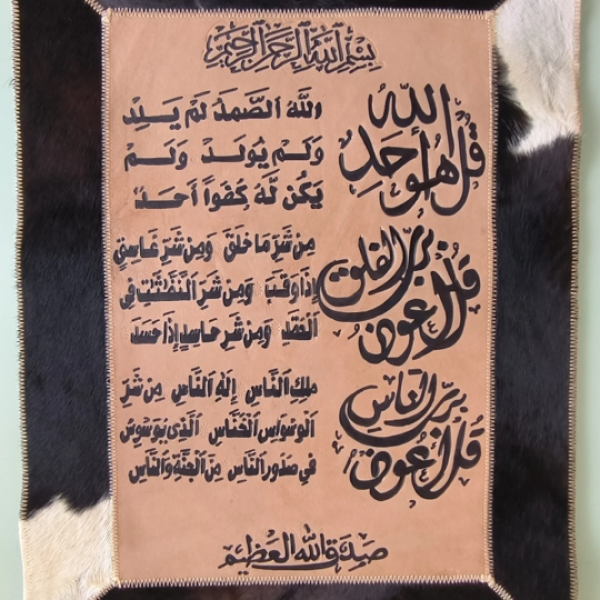 بِسْمِ ٱللَّهِ ٱلرَّحْمَٰنِ ٱلرَّحِيمِ
قُلْ هُوَ ٱللَّهُ أَحَدٌ
ٱللَّهُ ٱلصَّمَدُ لَمْ يَلِدْ
وَلَمْ يُولَدْ وَلَمْ
يَكُن لَّهُ كُفُواً أَحَدٌ
قُلْ أَعُوذُ بِرَبِّ ٱلْفَلَقِ
مِن شَرِّ مَا خَلَقَ وَمِن شَرِّ غَاسِقٍ
إِذَا وَقَبَ وَمِن شَرِّ ٱلنَّفَّٰثَٰتِ فِي
ٱلْعُقَدِ وَمِن شَرِّ حَاسِدٍ إِذَا حَسَدَ
قُلْ أَعُوذُ بِرَبِّ ٱلنَّاسِ
مَلِكِ ٱلنَّاسِ إِلَٰهِ ٱلنَّاسِ مِن شَرِّ
ٱلْوَسْوَاسِ ٱلْخَنَّاسِ ٱلَّذِي يُوَسْوِسُ
فِي صُدُورِ ٱلنَّاسِ مِنَ ٱلْجِنَّةِ وَٱلنَّاسِ
صَدَقَ اللهُ العَظِيم